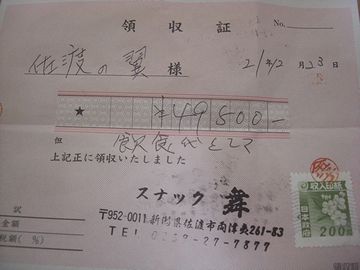 領収証
No.
佐渡の翼 様
21年12月23日
★ ¥49500-
但 飲食代として
上記正に領収いたしました
スナック 舞
〒952-0011 新潟県佐渡市両津夷261-83
TEL 0259-27-7877
金額
税額(%)
収入印紙
200
日本政府